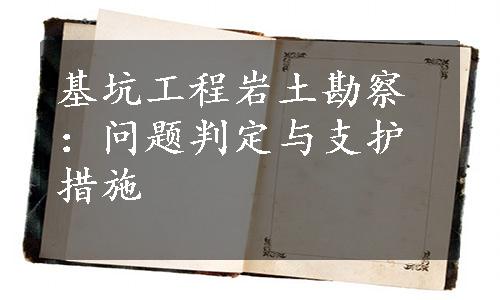 基坑工程岩土勘察
：问题判定与支护
措施